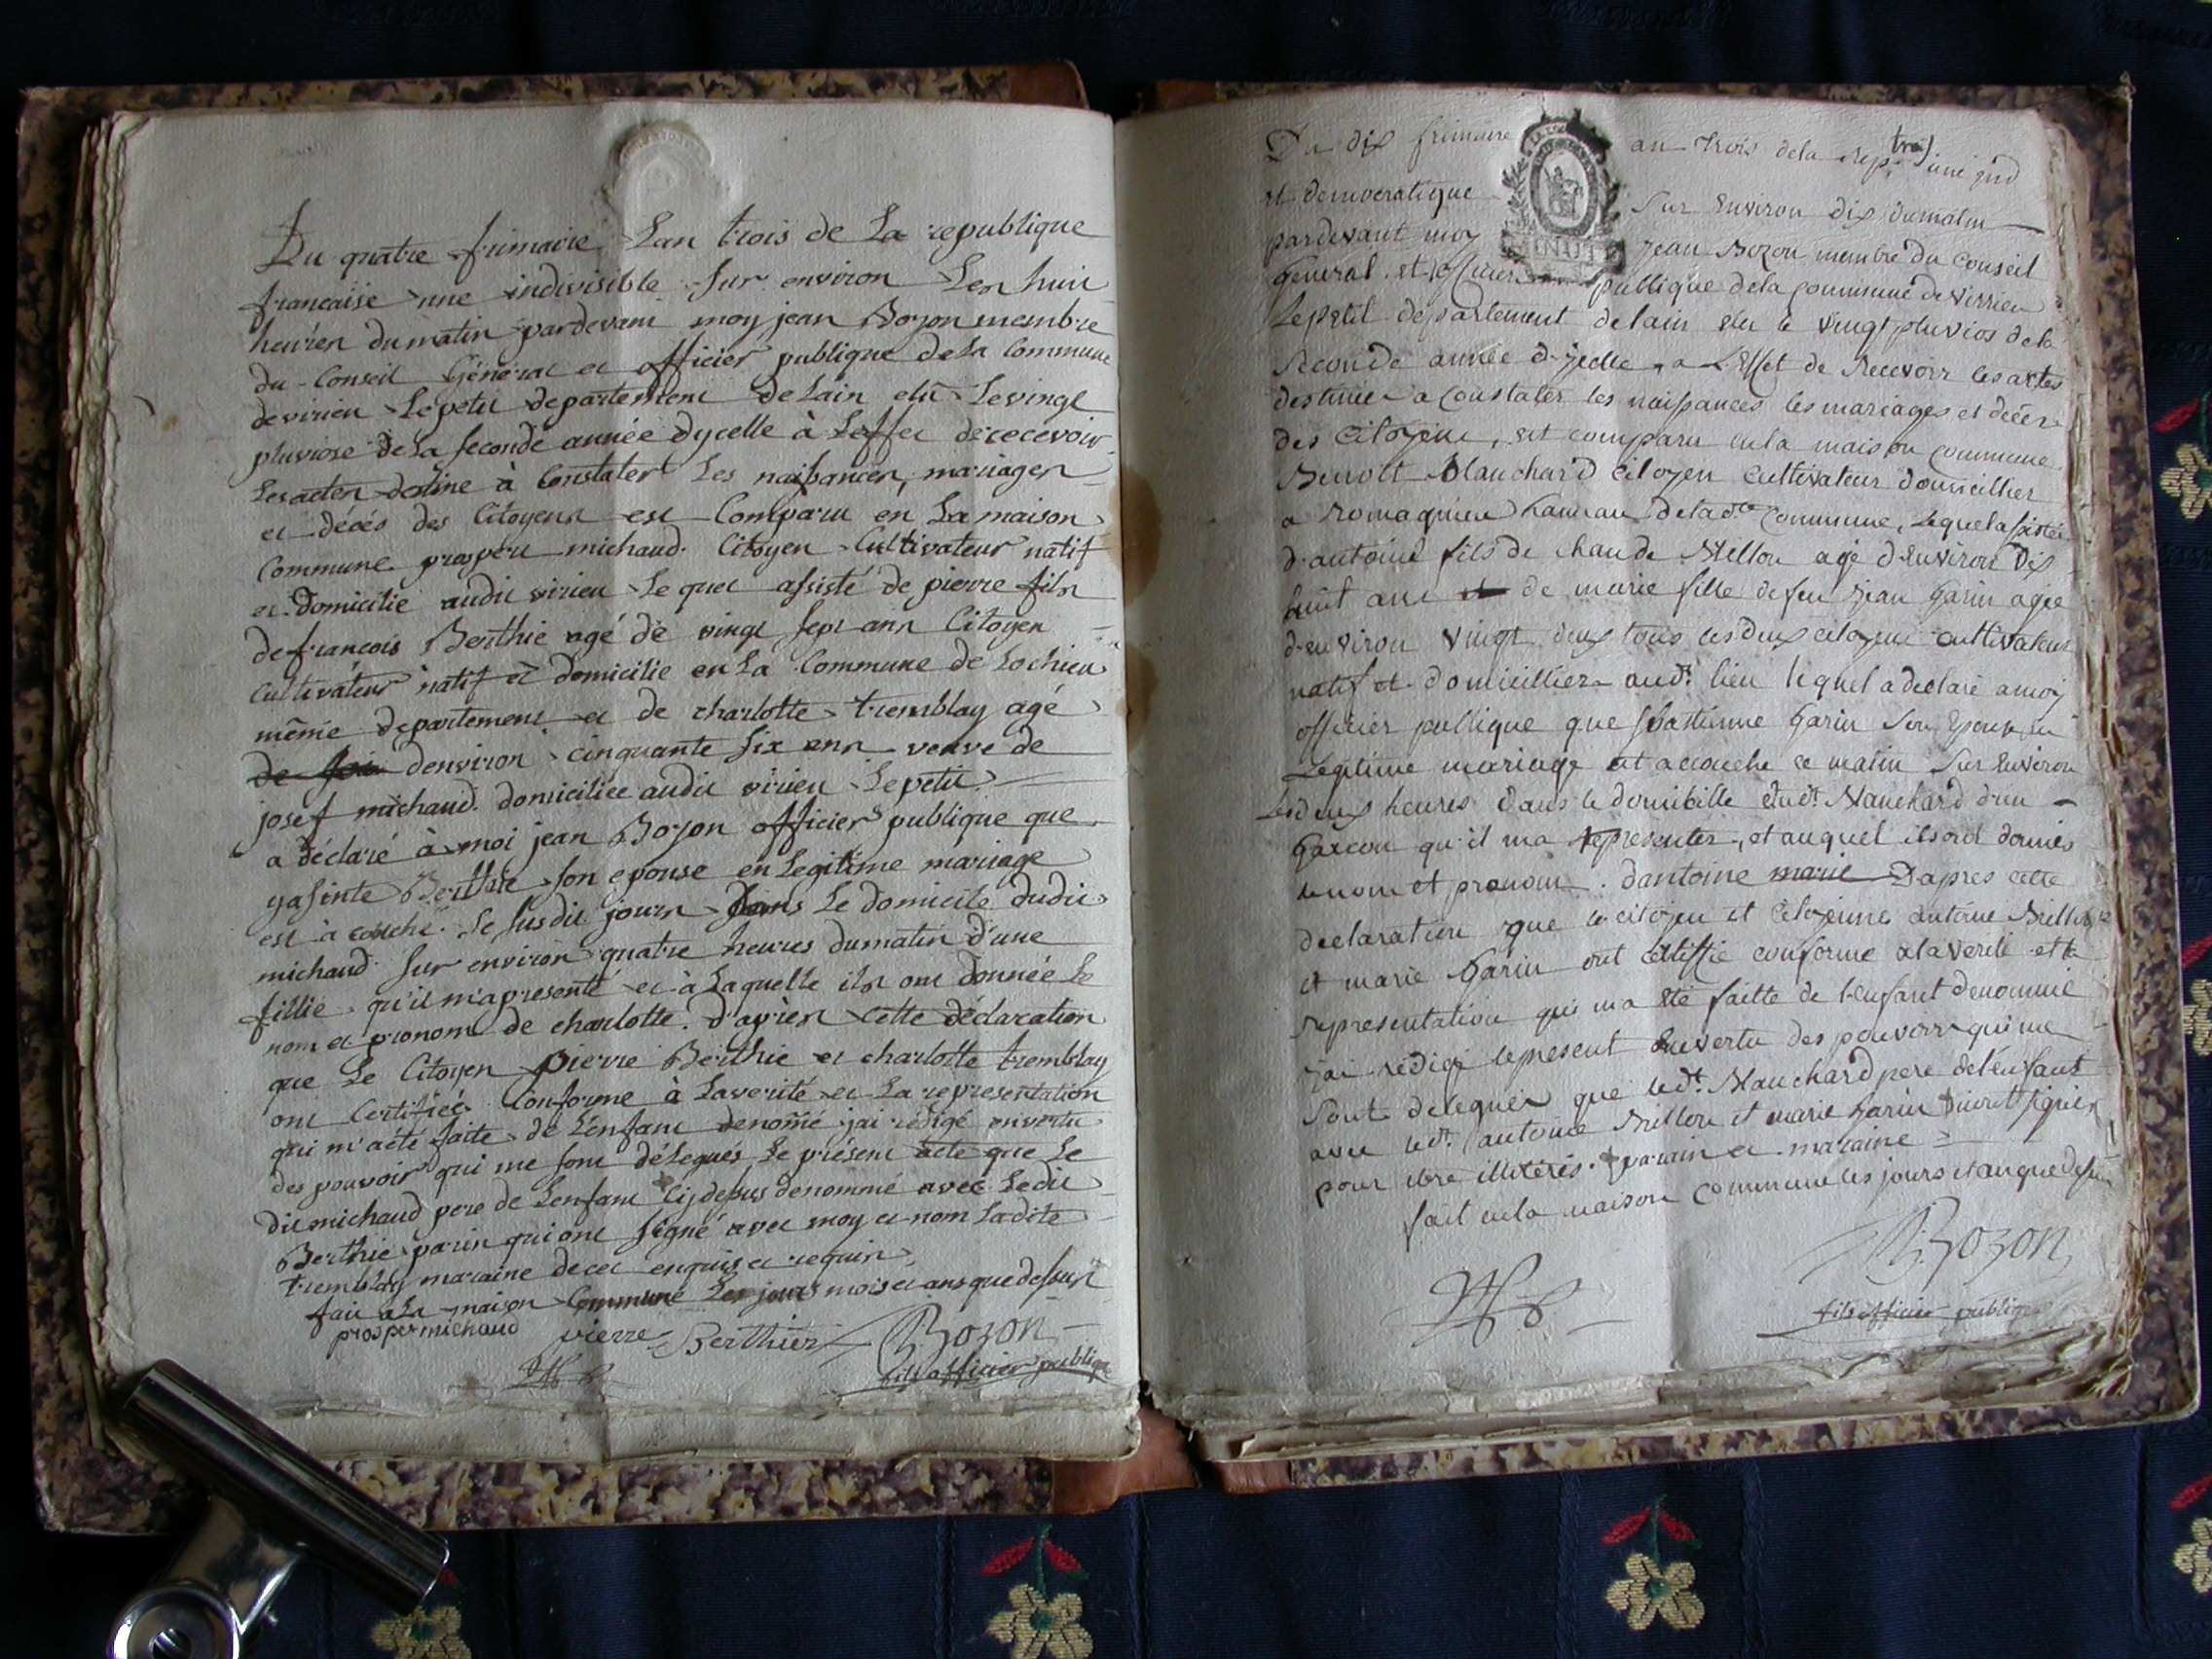 Du quatre frimaire Lan trois de La republique
francaise une indivisible sur environ Les huit
heures du matin pardevant moy jean Bozon membre
du Conseil Général et officier publique de La Commune
de virieu Le petit departement de Lain elû Le vingt
pluviose de La seconde année dycelle à Leffet de recevoir
Les actes destine à Constater Les naissances, mariages
et décés des Citoyens est Comparu en La maison
Commune prosper michaud Citoyen Cultivateur natif
et domicilié audit virieu Le quel assisté de pierre fils
de francois Berthie agé de vingt sept ans Citoyen
Cultivateur natif et domicilie en La Commune de Lochieu
même departement et de charlotte tremblay agé
denviron cinquante six ans veuve de
josef michaud domiciliée audit virieu Le petit
a déclaré à moi jean Bozon officier publique que
yasinte Berthie son epouse en Legitime mariage
est à couché Le susdit jours dans Le domicile dudit
michaud sur environ quatre heures du matin d'une
fillie qu'il m'a presenté et à Laquelle ils ont donnée Le
nom et pronom de charlotte. d'après cette déclaration
que Le Citoyen pierre Berthie et charlotte tremblay
ont Certifiéé Conforme à La verité et La representation
qui m'a été faite de L'enfant denomé jai rédigé en vertu
des pouvoir qui me sont délegués Le présent acte que Le
dit michaud pere de Lenfant Cy dessus denommé avec Ledit
Berthie parin qui ont signé avec moy et nom Ladite
tremblay maraine de ce enquis et requis
fait a La maison Commune Les jours mois et ans que dessus
prosper michaud pierre Berthier Bozon
fils officier publiqe
Du dix frimaire an trois de la rep une ind
et democratique Sur Environ dix du matin
pardevant moy Jean Bozon membre du Conseil
General et officier publique de la Commune de Virrieu
Le petit departement de lain elu le vingt pluvios de la
Seconde année d'ycelle a L'Effet de Recevoir les actes
destinée a Constater les naissances les mariages et décès
des Citoyens, est comparu en la maison commune
Benoît Blanchard Citoyen Cultivateur domicillier
a Romagnieu hameau de la dte Commune, Lequel assistée
d'antoine fils de Claude Millou agé d'Environ Dix
huit ans de marie fille de feu Jean Garin agée
d'environ vingt deux tous les deux citoyens cultivateur
natif et domicillier audt lieu lequel a declaré a moy
officier publique que Garin Son Epouse en
Legitime mariage est accouché ce matin Sur Environ
les deux heures dans le domicille dudt Blanchard d'un
Garcon qu'il ma representer, et auquel ils ont donnés
le nom et pronom. dantoine marie D'apres cette
declaration que le citoyen et Citoyenne antoine Millou
et marie Garin ont certiffié conforme a la verité et la
representation qui ma eté faitte de l'enfant denommé
j'ai rédigé le present En vertu des pouvoirs qui me
Sont delegués que ledt. Blanchard pere de l'enfant
avec ledt. antoine Millou et marie Garin signer
pour etre illiterés. parain et maraine
fait en la maison Commune les jours et an que dessus
Bozon
fils officier publique